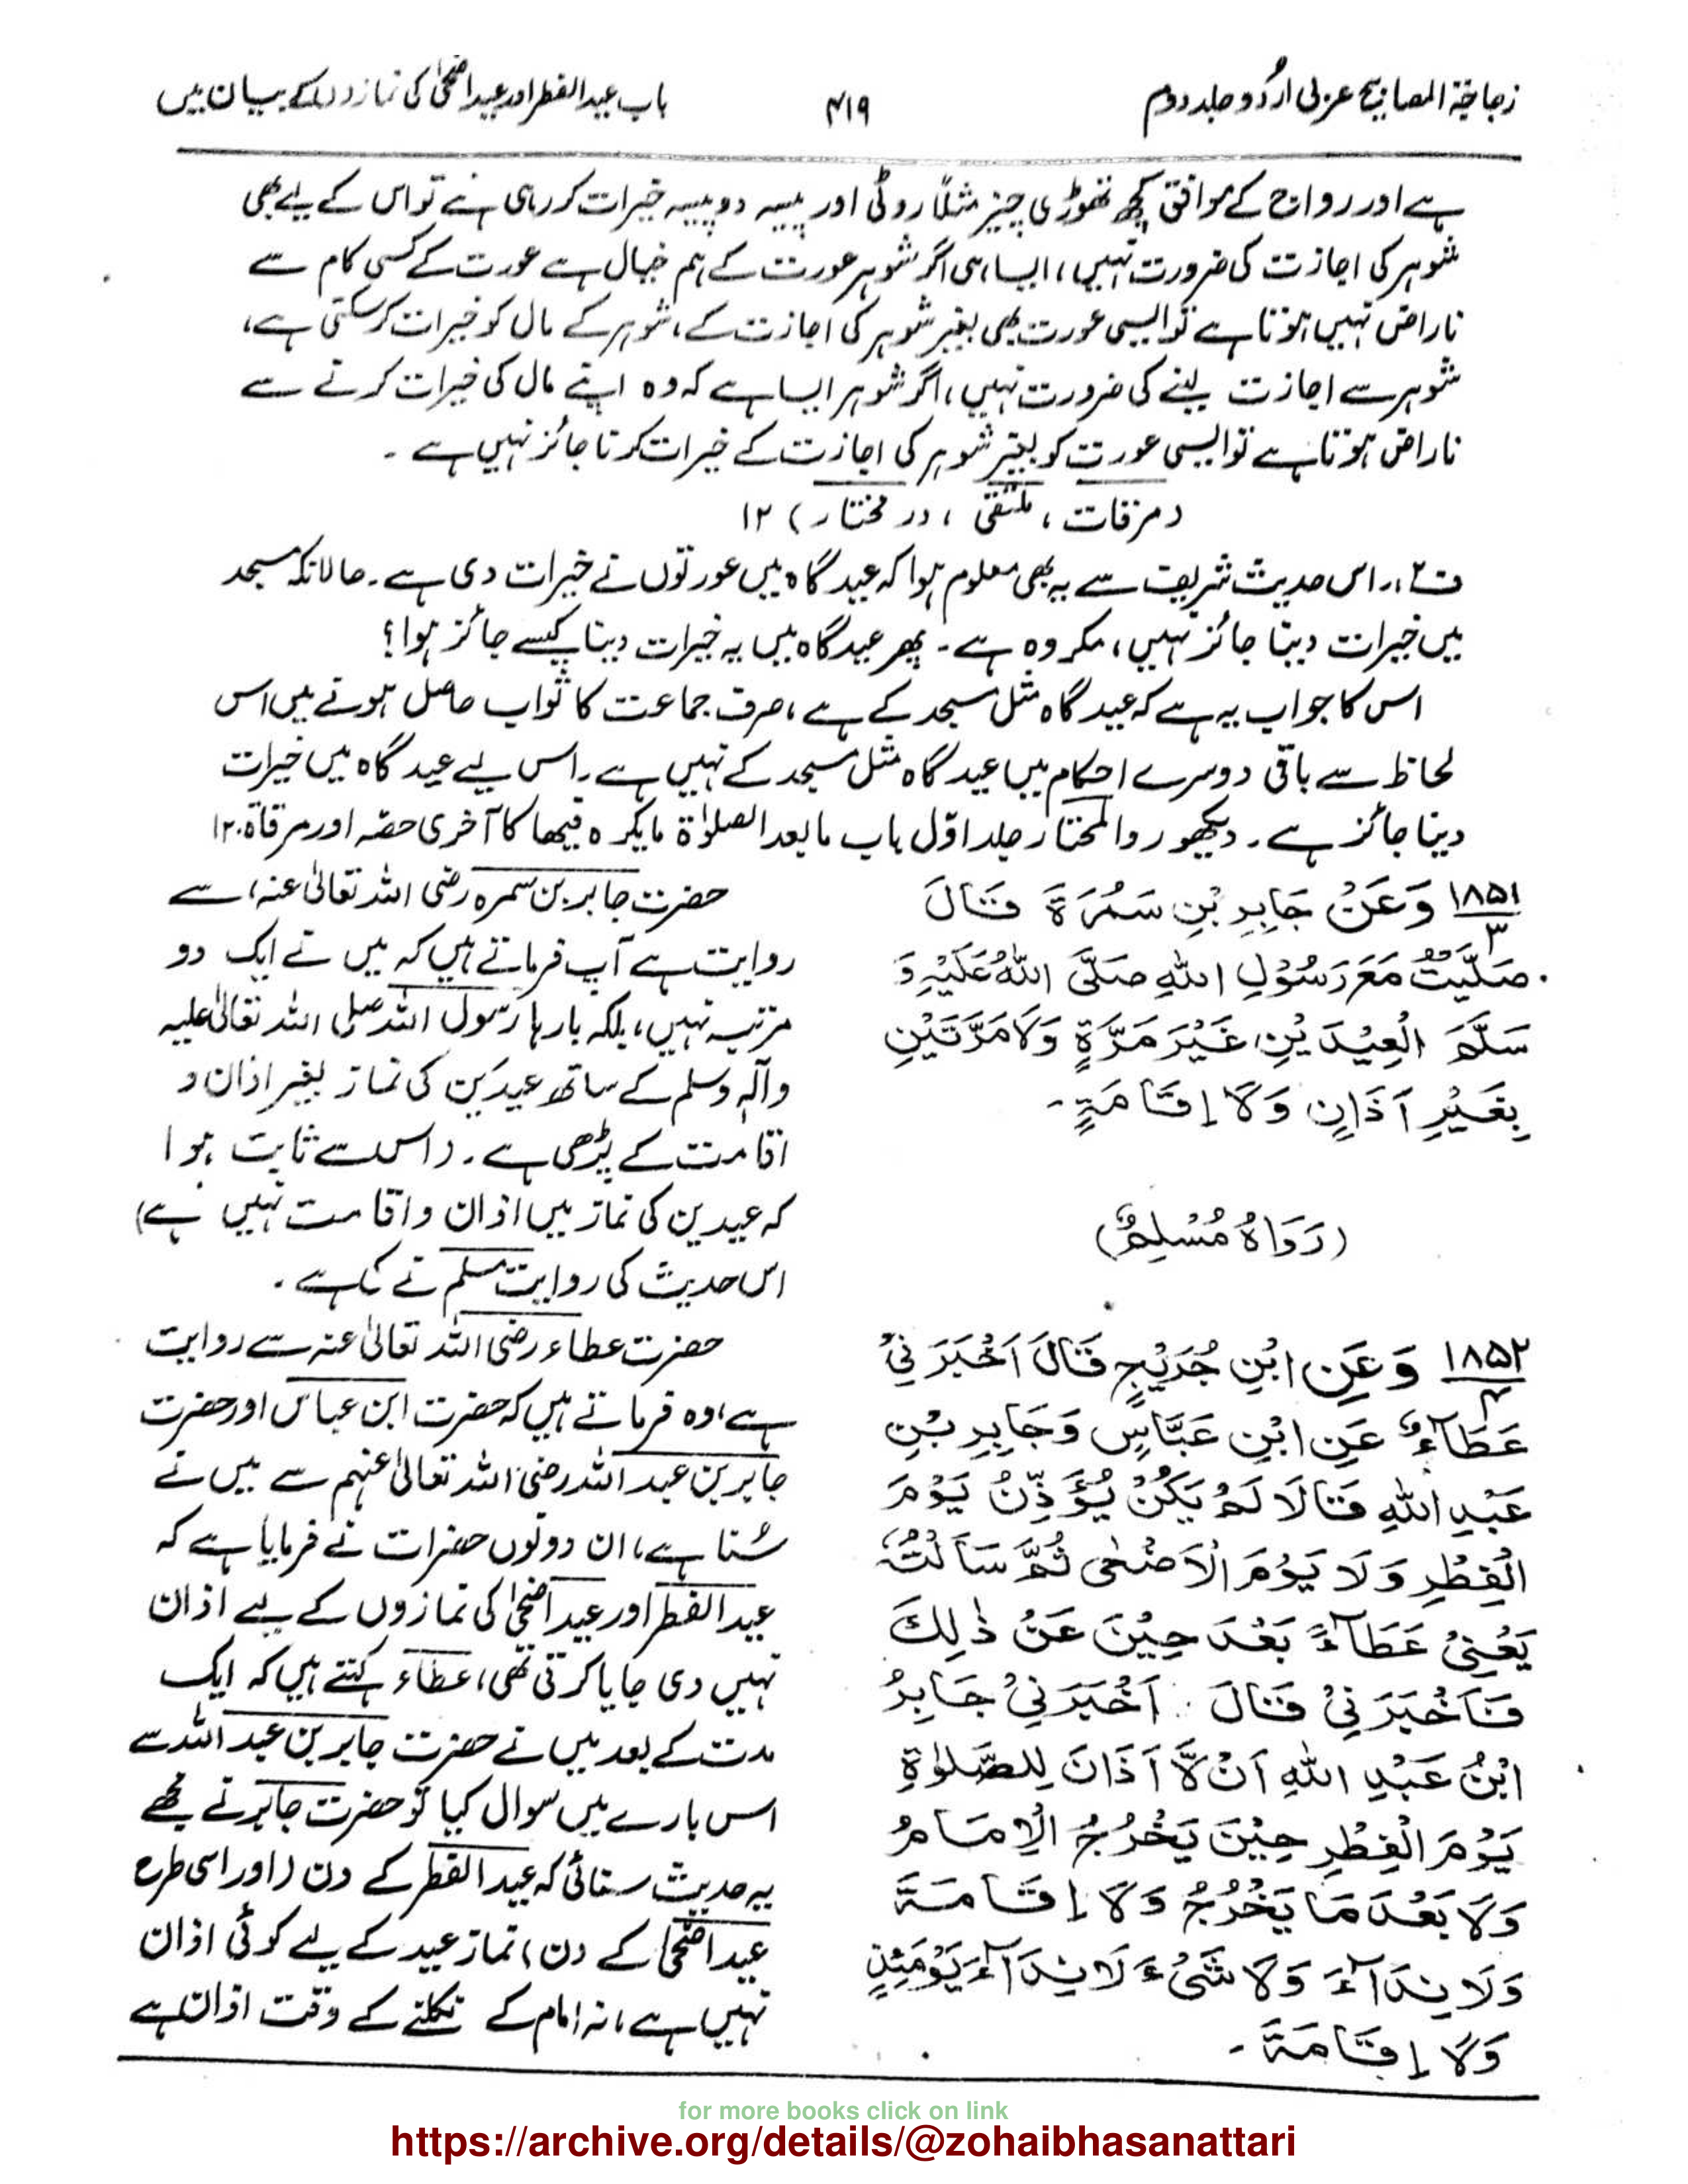 زجاجۃ المصابیح عربی اردو جلد دوم
۴۱۹
باب عید الفطر اور عید اضحیٰ کی نمازوں کے بیان میں
ہے اور رواج کے موافق کچھ تھوڑی چیز مثلاً روٹی اور پیسہ دو پیسہ خیرات کر رہی ہے تو اس کے لیے بھی
شوہر کی اجازت کی ضرورت نہیں، ایسا ہی اگر شوہر عورت کے ہم خیال ہے عورت کے کسی کام سے
ناراض نہیں ہوتا ہے تو ایسی عورت بھی بغیر شوہر کی اجازت کے، شوہر کے مال کو خیرات کر سکتی ہے،
شوہر سے اجازت لینے کی ضرورت نہیں، اگر شوہر ایسا ہے کہ وہ اپنے مال کی خیرات کرنے سے
ناراض ہوتا ہے تو ایسی عورت کو بغیر شوہر کی اجازت کے خیرات کرنا جائز نہیں ہے ۔
(مرقات، ملتقی، در مختار) ۱۲
ف۲:۔ اس حدیث شریف سے یہ بھی معلوم ہوا کہ عید گاہ میں عورتوں نے خیرات دی ہے۔ حالانکہ مسجد
میں خیرات دینا جائز نہیں، مکروہ ہے۔ پھر عیدگاہ میں یہ خیرات دینا کیسے جائز ہوا؟
اس کا جواب یہ ہے کہ عید گاہ مثل مسجد کے ہے، صرف جماعت کا ثواب حاصل ہونے میں اس
لحاظ سے باقی دوسرے احکام میں عید گاہ مثل مسجد کے نہیں ہے۔ اس لیے عید گاہ میں خیرات
دینا جائز ہے۔ دیکھو رد المحتار جلد اوّل باب مابعد الصلوٰۃ مایکرہ فیھا کا آخری حصّہ اور مرقاۃ۔ ۱۲
۱۸۵۱/۳ وَعَنْ جَابِرِ بْنِ سَمُرَةَ قَالَ
صَلَّيْتُ مَعَ رَسُوْلِ اللهِ صَلَّى اللهُ عَلَيْهِ وَ
سَلَّمَ الْعِيْدَيْنِ غَيْرَ مَرَّةٍ وَلَا مَرَّتَيْنِ
بِغَيْرِ اَذَانٍ وَلَا اِقَامَةٍ ۔
(رَوَاهُ مُسْلِمٌ)
حضرت جابر بن سمرہ رضی اللہ تعالیٰ عنہ، سے
روایت ہے آپ فرماتے ہیں کہ میں نے ایک دو
مرتبہ نہیں، بلکہ بارہا رسول اللہ صلی اللہ تعالیٰ علیہ
وآلہٖ وسلم کے ساتھ عیدَین کی نماز بغیر اذان و
اقامت کے پڑھی ہے۔ (اس سے ثابت ہوا
کہ عیدین کی نماز میں اذان و اقامت نہیں ہے)
اس حدیث کی روایت مسلم نے کی ہے ۔
۱۸۵۲/۴ وَعَنِ ابْنِ جُرَيْجٍ قَالَ اَخْبَرَنِيْ
عَطَآءٌ عَنِ ابْنِ عَبَّاسٍ وَجَابِرِ بْنِ
عَبْدِ اللهِ قَالَا لَمْ يَكُنْ يُؤَذَّنُ يَوْمَ
الْفِطْرِ وَلَا يَوْمَ الْاَضْحٰى ثُمَّ سَاَلْتُهُ
يَعْنِيْ عَطَآءً بَعْدَ حِيْنَ عَنْ ذٰلِكَ
فَاَخْبَرَنِيْ قَالَ اَخْبَرَنِيْ جَابِرُ
ابْنُ عَبْدِ اللهِ اَنْ لَّا اَذَانَ لِلصَّلٰوةِ
يَوْمَ الْفِطْرِ حِيْنَ يَخْرُجُ الْاِمَامُ
وَلَا بَعْدَ مَا يَخْرُجُ وَلَا اِقَامَةَ
وَلَا نِدَآءَ وَلَا شَیْءَ لَا نِدَآءَ يَوْمَئِذٍ
وَلَا اِقَامَةَ ۔
حضرت عطاء رضی اللہ تعالیٰ عنہ سے روایت
ہے، وہ فرماتے ہیں کہ حضرت ابن عباس اور حضرت
جابر بن عبد اللہ رضی اللہ تعالیٰ عنہم سے میں نے
سُنا ہے، ان دونوں حضرات نے فرمایا ہے کہ
عید الفطر اور عید اضحیٰ کی نمازوں کے لیے اذان
نہیں دی جایا کرتی تھی، عطاء کہتے ہیں کہ ایک
مدت کے بعد میں نے حضرت جابر بن عبد اللہ سے
اس بارے میں سوال کیا تو حضرت جابر نے مجھے
یہ حدیث سنائی کہ عید الفطر کے دن (اور اسی طرح
عید اضحیٰ کے دن) نماز عید کے لیے کوئی اذان
نہیں ہے، نہ امام کے نکلتے کے وقت اذان ہے
for more books click on link
https://archive.org/details/@zohaibhasanattari